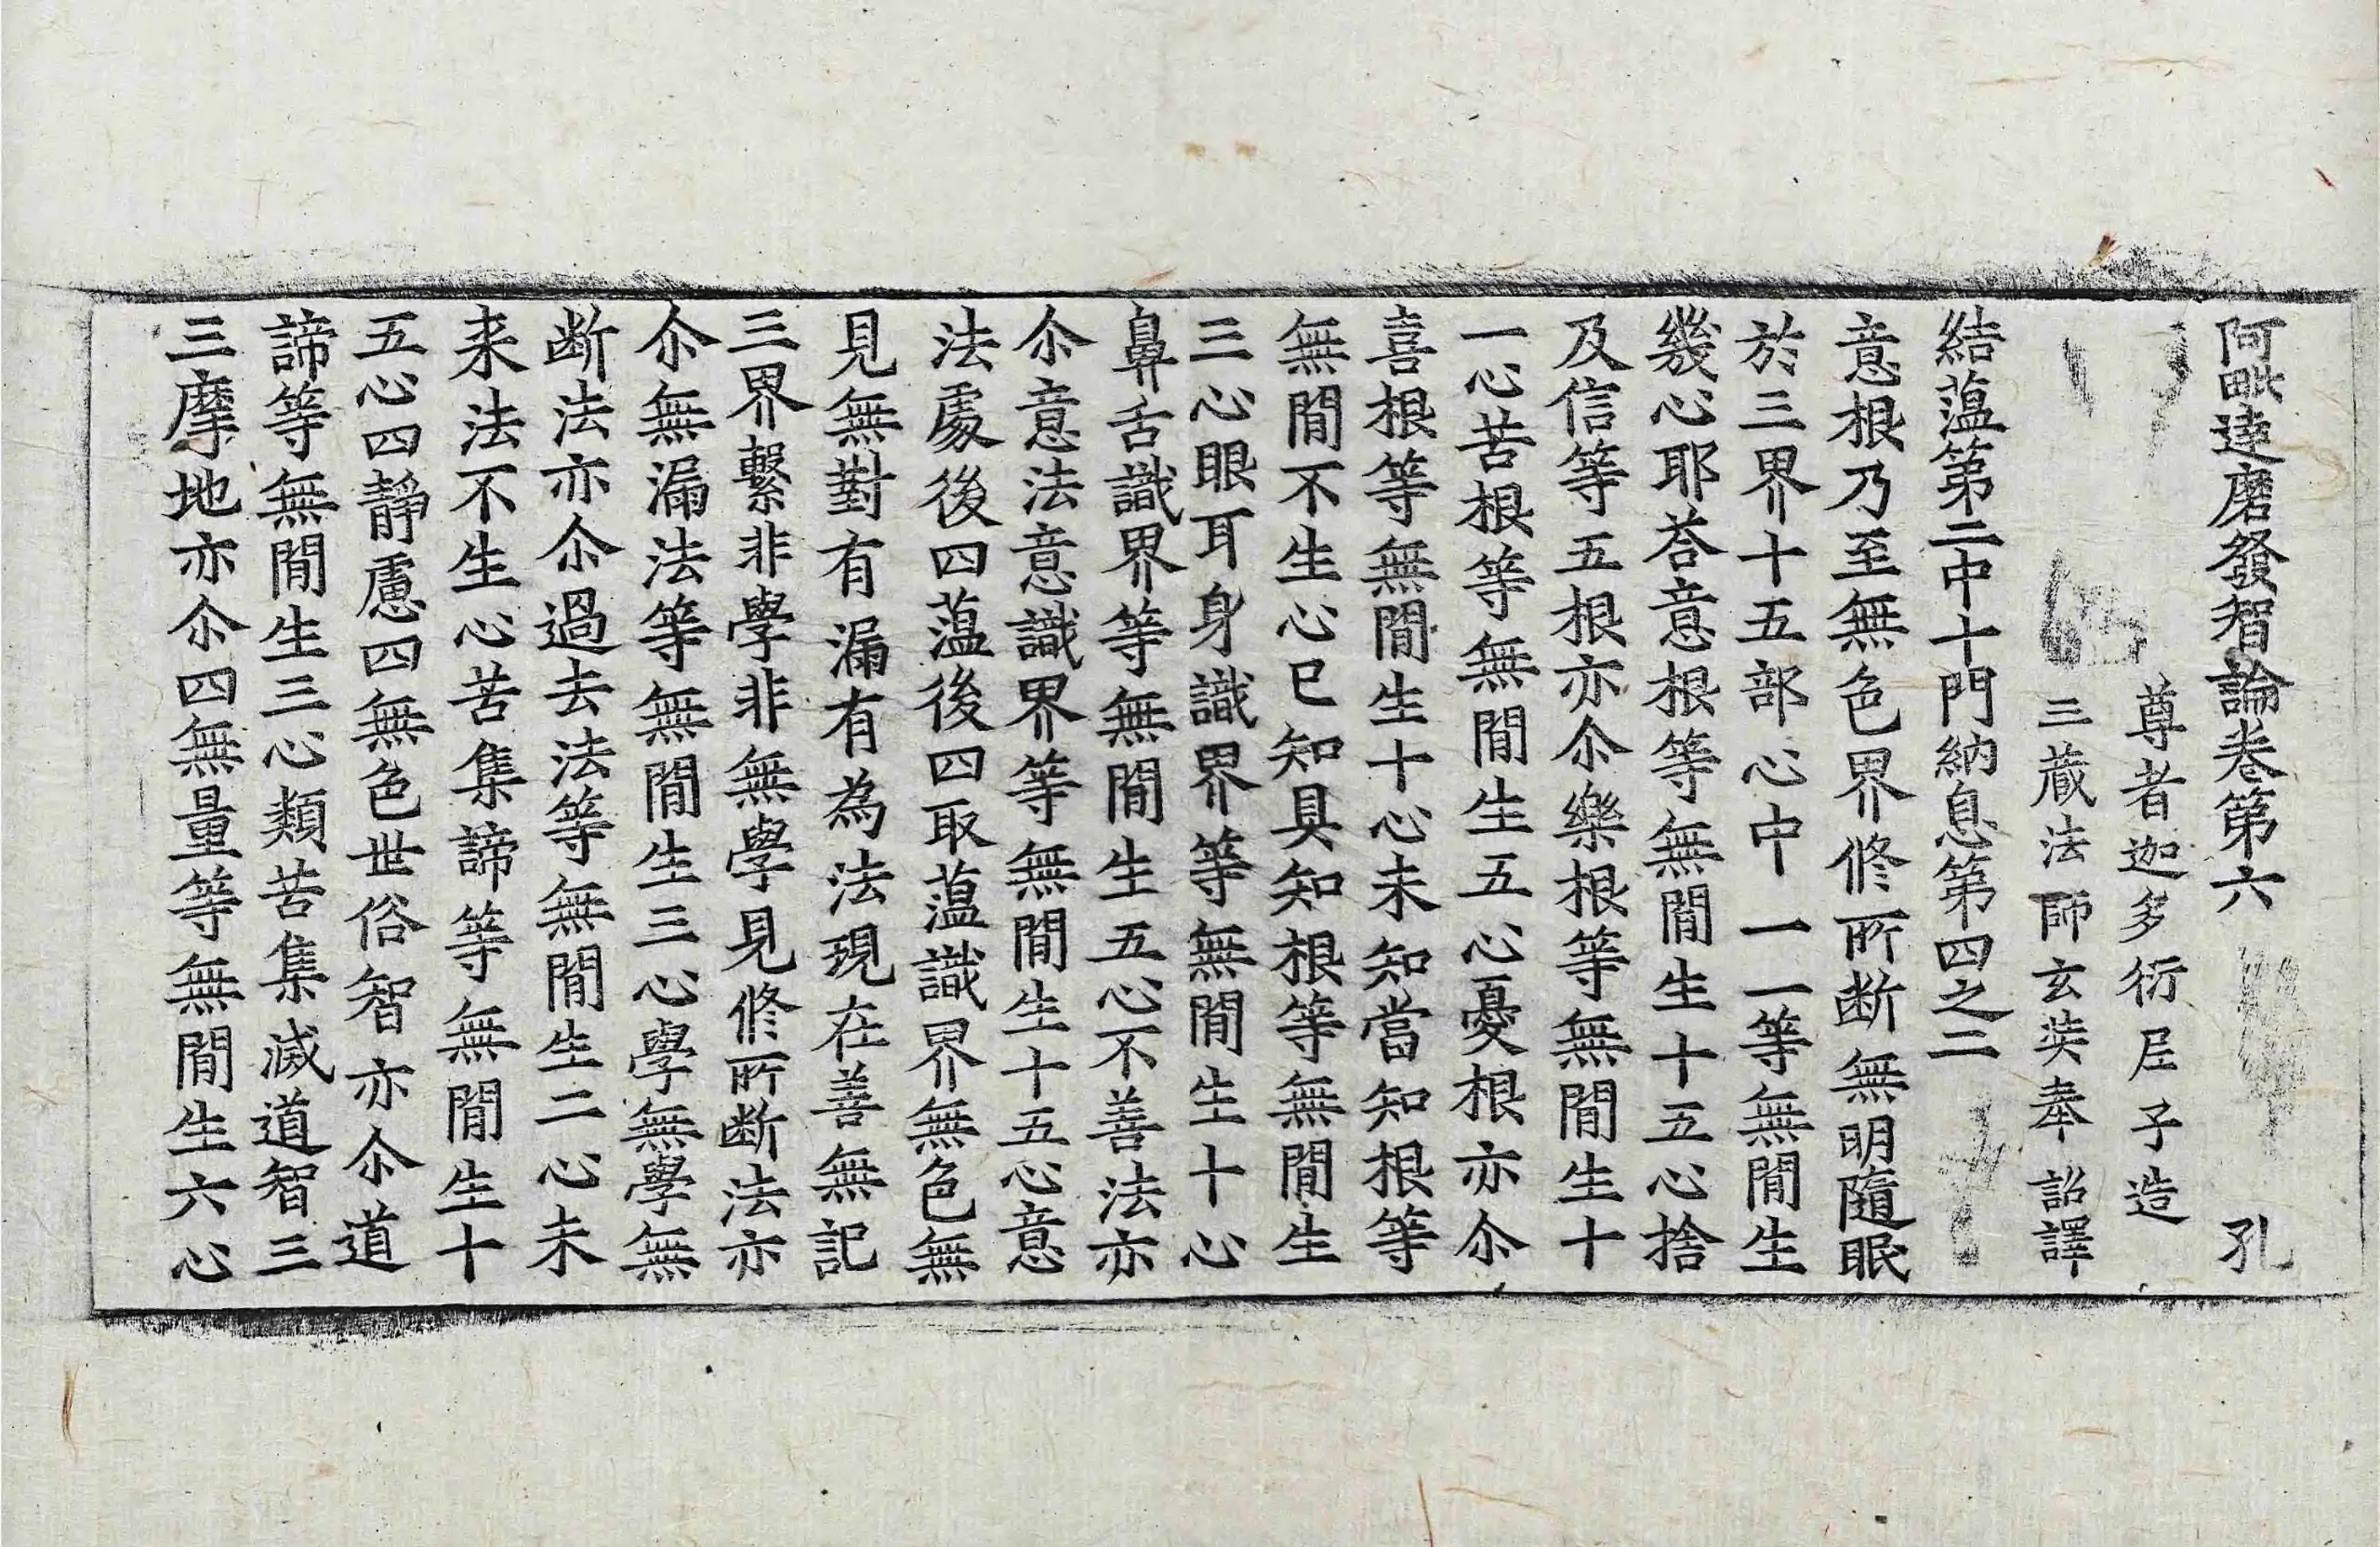 阿毗達磨發智論卷第六　孔
尊者迦多衍尼子造
三藏法師玄奘奉　詔譯
結蕰第二中十門納息第四之二
意根乃至無色界修所断無明隨眠
於三界十五部心中一一等無間生
幾心耶荅意根等無間生十五心捨
及信等五根亦尒樂根等無間生十
一心苦根等無間生五心憂根亦尒
喜根等無間生十心未知當知根等
無間不生心已知具知根等無間生
三心眼耳身識界等無間生十心
鼻舌識界等無間生五心不善法亦
尒意法意識界等無間生十五心意
法處後四蕰後四取蕰識界無色無
見無對有漏有為法現在善無記
三界繫非學非無學見修所断法亦
尒無漏法等無間生三心學無學無
断法亦尒過去法等無間生二心未
来法不生心苦集諦等無間生十
五心四靜慮四無色世俗智亦尒道
諦等無間生三心類苦集滅道智三
三摩地亦尒四無量等無間生六心